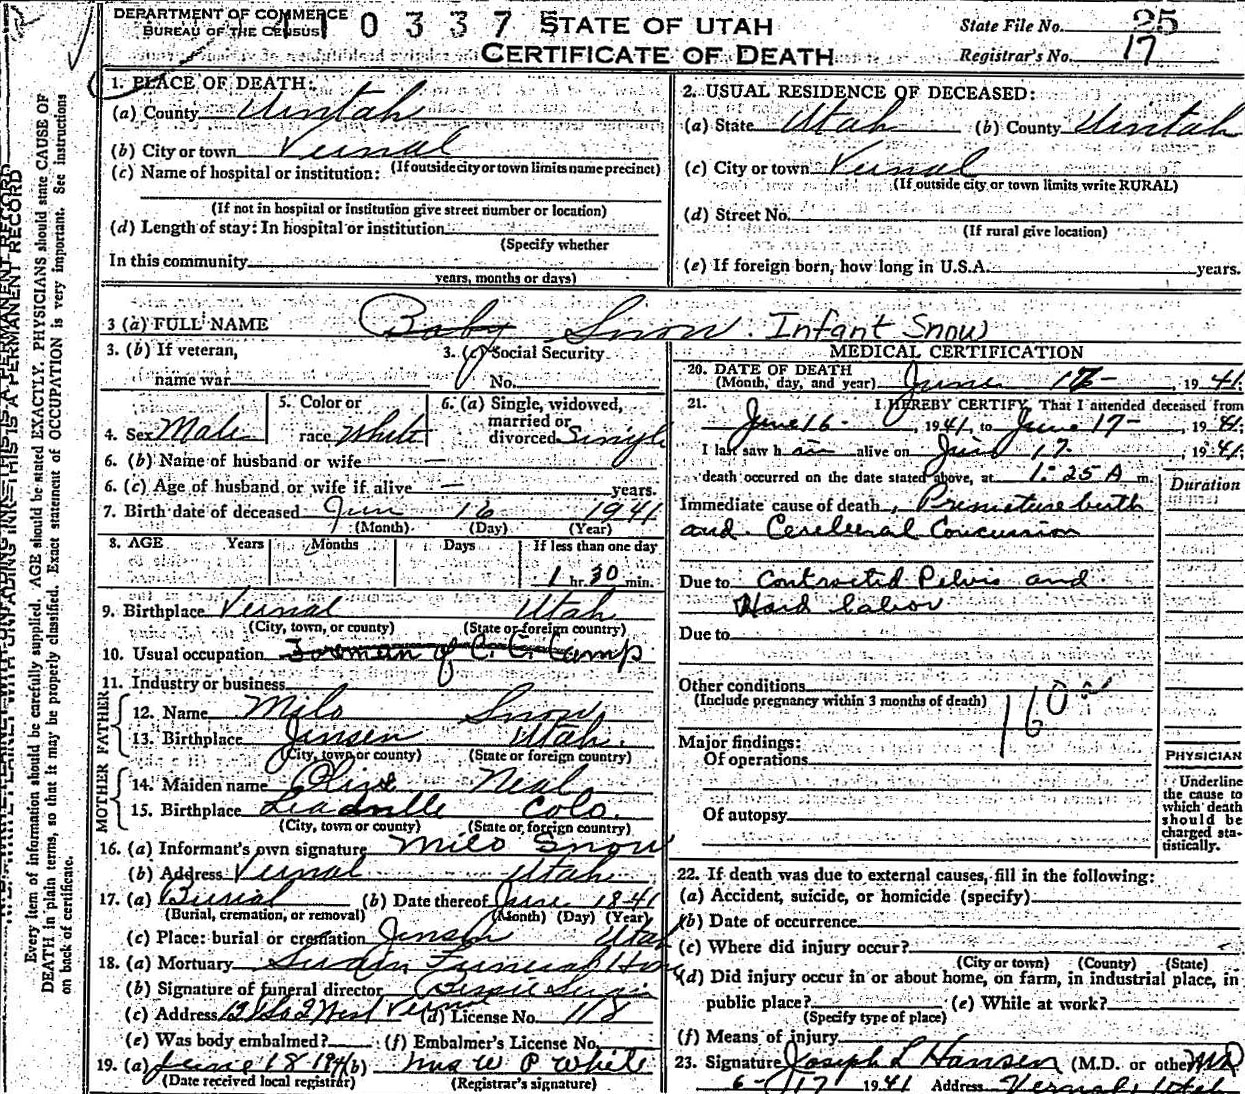 DEPARTMENT OF COMMERCE
BUREAU OF THE CENSUS
0 3 3 7 STATE OF UTAH
CERTIFICATE OF DEATH
State File No. 25
Registrar's No. 17
1. PLACE OF DEATH:
(a) County Uintah
(b) City or town Vernal
(If outside city or town limits name precinct)
(c) Name of hospital or institution:
(If not in hospital or institution give street number or location)
(d) Length of stay: In hospital or institution
(Specify whether
In this community
years, months or days)
2. USUAL RESIDENCE OF DECEASED:
(a) State Utah (b) County Uintah
(c) City or town Vernal
(If outside city or town limits write RURAL)
(d) Street No.
(If rural give location)
(e) If foreign born, how long in U.S.A. years.
3 (a) FULL NAME Baby Snow. Infant Snow
3. (b) If veteran,
name war
3. (c) Social Security
No.
4. Sex Male
5. Color or
race White
6. (a) Single, widowed,
married or
divorced Single
6. (b) Name of husband or wife —
6. (c) Age of husband or wife if alive — years.
7. Birth date of deceased Jun 16 1941
(Month) (Day) (Year)
8. AGE Years Months Days If less than one day
1 hr. 30 min.
9. Birthplace Vernal Utah
(City, town, or county) (State or foreign country)
10. Usual occupation Foreman of C.C. Camp
11. Industry or business
FATHER
12. Name Milo Snow
13. Birthplace Jensen Utah.
(City, town or county) (State or foreign country)
MOTHER
14. Maiden name Neal
15. Birthplace Leadville Colo.
(City, town or county) (State or foreign country)
16. (a) Informant's own signature Milo Snow
(b) Address Vernal Utah
17. (a) Burial (b) Date thereof June 18-41
(Burial, cremation, or removal) (Month) (Day) (Year)
(c) Place: burial or cremation Jensen Utah
18. (a) Mortuary Swain Funeral Home
(b) Signature of funeral director Bessie Swain
(c) Address So 2 West Vernal (d) License No. 118
(e) Was body embalmed? (f) Embalmer's License No.
19. (a) June 18 1941 (b) Mrs W P White
(Date received local registrar) (Registrar's signature)
MEDICAL CERTIFICATION
20. DATE OF DEATH
(Month, day, and year) June 17- , 1941.
21. I HEREBY CERTIFY, That I attended deceased from
June 16- , 1941, to June 17- , 1941.
I last saw h im alive on June 17- , 1941.
death occurred on the date stated above, at 1:25 A m.
Duration
Immediate cause of death, Premature birth
and Cerebral Concussion
Due to Contracted Pelvis and
Hard labor
Due to
Other conditions
(Include pregnancy within 3 months of death)
160
Major findings:
Of operations
Of autopsy
PHYSICIAN
Underline
the cause to
which death
should be
charged sta-
tistically.
22. If death was due to external causes, fill in the following:
(a) Accident, suicide, or homicide (specify)
(b) Date of occurrence
(c) Where did injury occur?
(City or town) (County) (State)
(d) Did injury occur in or about home, on farm, in industrial place, in
public place? (e) While at work?
(Specify type of place)
(f) Means of injury
23. Signature Joseph L Hansen (M.D. or other) MD
6-17 1941 Address Vernal, Utah
THIS IS A PERMANENT RECORD
Every item of information should be carefully supplied. AGE should be stated EXACTLY. PHYSICIANS should state CAUSE OF
DEATH in plain terms, so that it may be properly classified. Exact statement of OCCUPATION is very important. See instructions
on back of certificate.